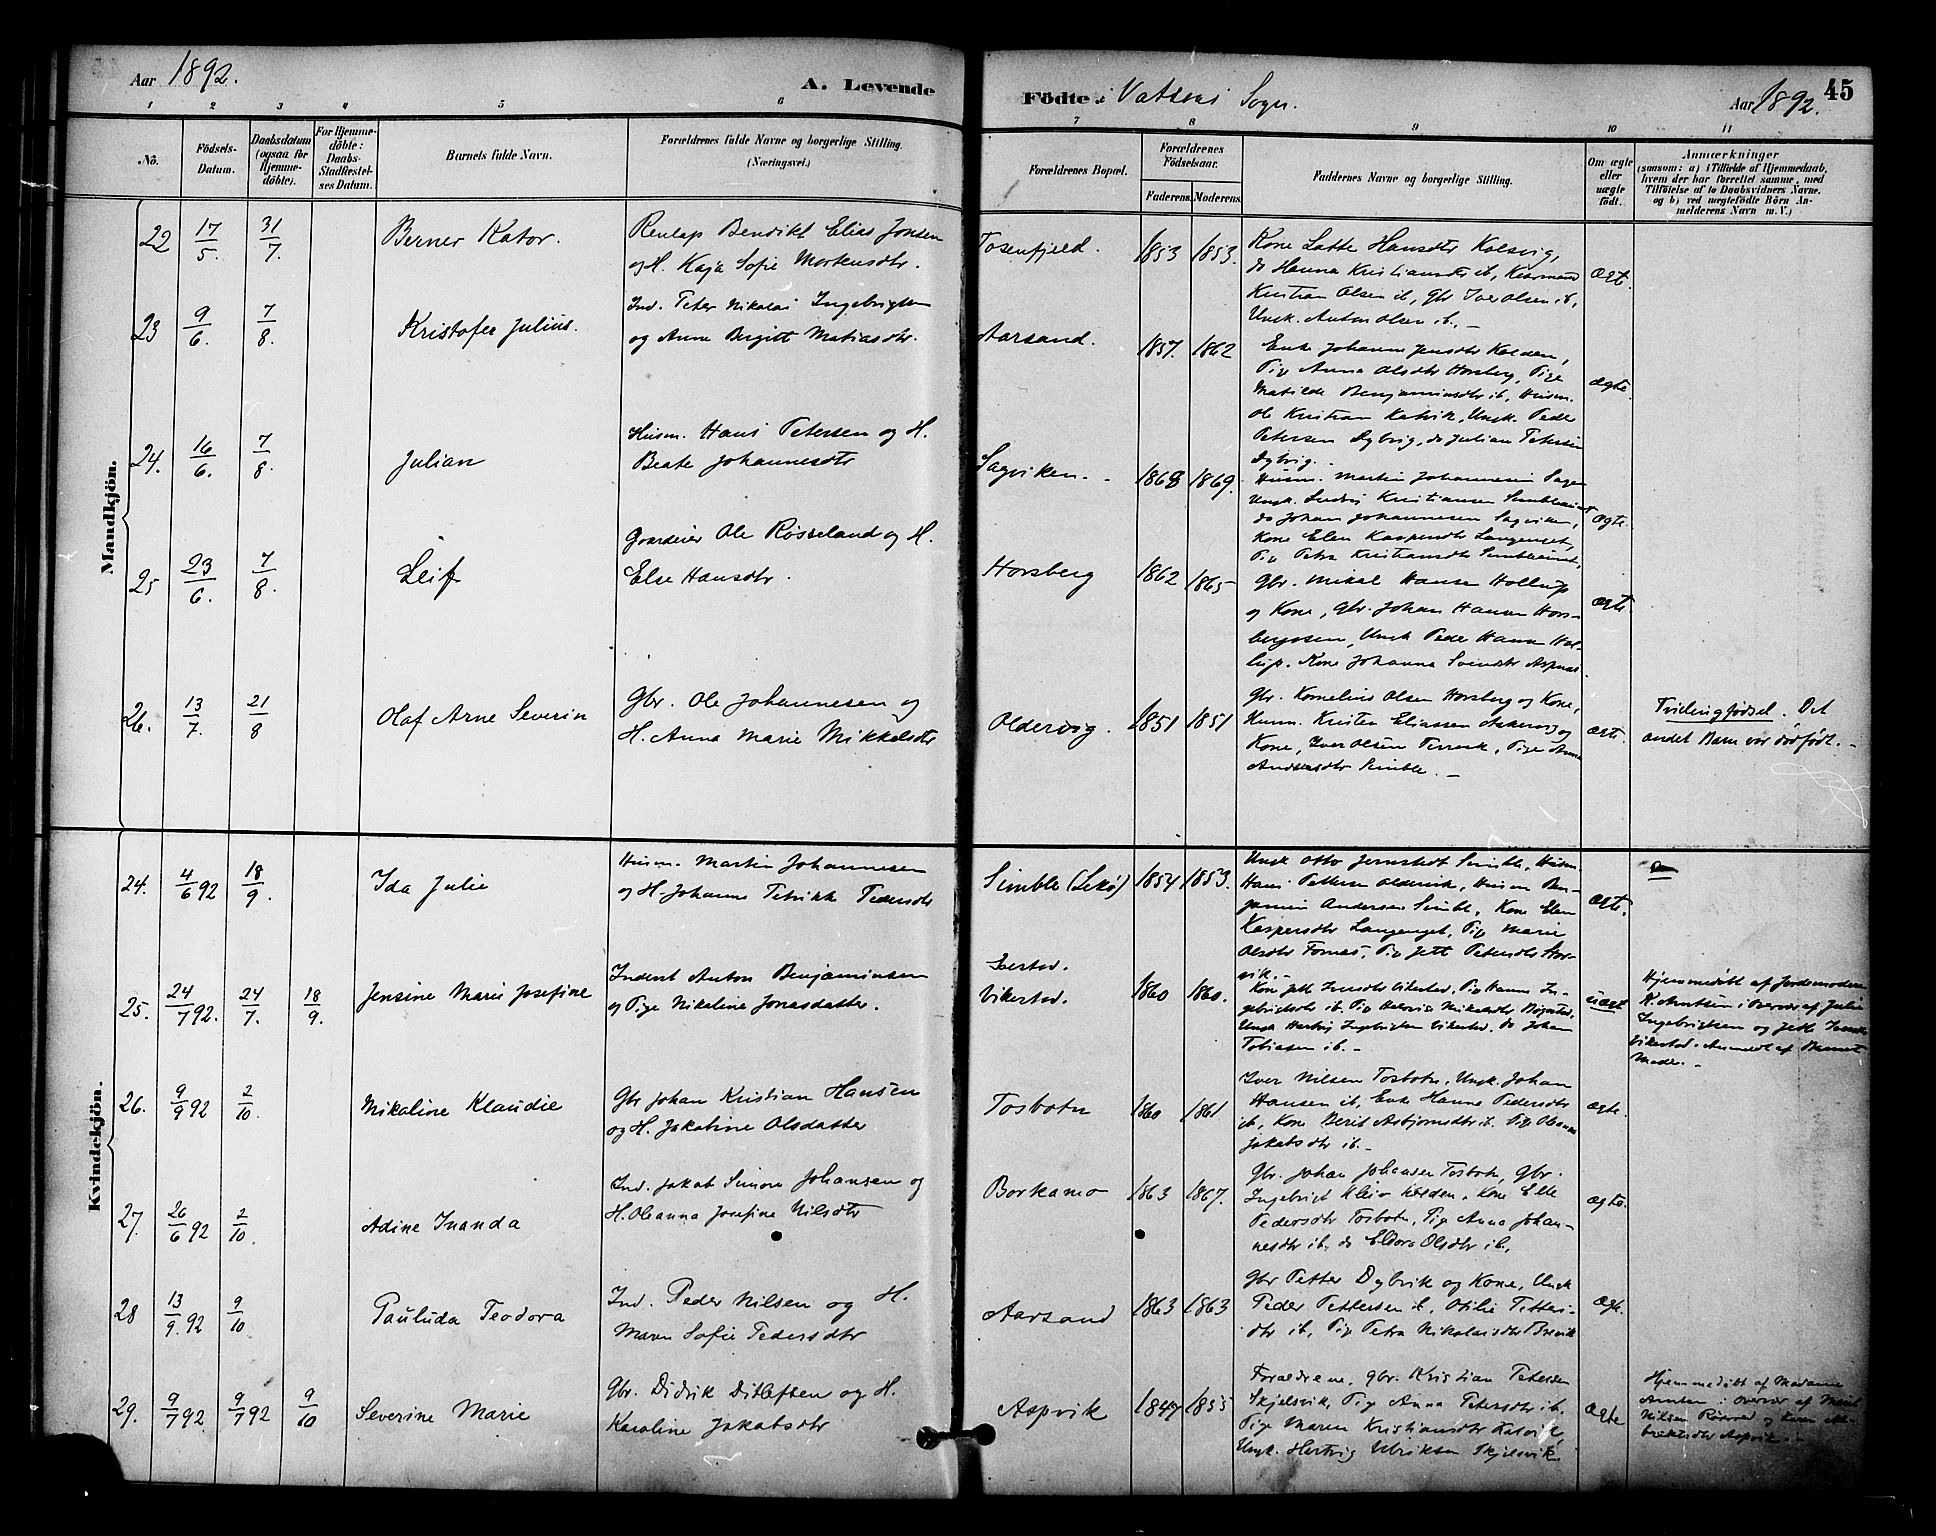 Aar 1892.
A. Levende
Födte i Vatsens Sogn.
Aar 1892.
45
1 2 3 4 5 6 7 8 9 10 11
No.
Födsels-Datum.
Daabsdatum (ogsaa for Hjemmedöbte).
For Hjemmedöbte: Daabs-Stadfæstelses Datum.
Barnets fulde Navn.
Forældrenes fulde Navne og borgerlige Stilling. (Næringsvei.)
Forældrenes Bopæl.
Forældrenes Födselsaar.
Faderens. Moderens.
Faddernes Navne og borgerlige Stilling.
Om ægte eller uægte födt.
Anmærkninger
(saasom: a) i Tilfælde af Hjemmedaab, hvem der har forrettet samme, med Tilföielse af to Daabsvidners Navne. og b) ved uægtefödte Börn Anmelderens Navn m. V.)
Mandkjön.
22 17/5. 31/7. Berner Kator.
Renlap Bendikt Elias Jonsen
og H. Kaja Sofie Mortensdtr.
Tosenfjeld. 1853 1853.
Kone Lotte Hansdtr Kolsvig,
do Hanna Kristiansdtr ib,
Kristian Olsen ib, Gbr Iver Olsen ib,
Ungk. Anton Olsen ib. –
Ægte.
23 9/6. 7/8. Kristofer Julius.
Ind. Peter Nikolai Ingebrigtsen
og Anne Birgitt Matiasdtr.
Aarsand. 1857. 1862
Enke Johanna Jensdtr Kolden,
Pige Anna Olsdtr Horsberg, Pige
Matilde Benjaminsdtr ib, Husm.
Ole Kristian Kalvik, Ungk. Peder
Petersen Dybvig, do Julian Petersen
Dybvig.
Ægte.
24. 16/6. 7/8. Julian
Husm. Hans Petersen og H.
Beate Johannesdtr
Sagviken. 1868 1869.
Husm. Martin Johannesen Sagen
Ungk. Kristiansen
do Johan Johannesen Sagviken,
Kone Elen Kaspersdtr Langenget,
Pige Petra Kristiansdtr
Ægte.
25 23/6. 7/8. Leif
Gaardeier Ole Røsseland og H.
Else Hansdtr.
Horsberg 1862 1865
Gbr. Mikal Hansen Hollup
og Kone, Gbr. Johan Hansen Hors-
bergosen, Ungk Peder Hansen Hol-
lup. Kone Johanna Svendsdtr Aspnes
Ægte
26. 13/7. 21/8 Olaf Arne Severin
Gbr. Ole Johannesen og
H. Anna Marie Mikkelsdtr
Oldervog. 1851 1851
Gbr. Kornelius Olsen Horsberg og Kone,
Husm. Kristen Eliassen og
Kone, Iver Olsen Terraak, Pige Anna
Andreasdtr Simble. –
Ægte.
Tvillingfødsel. Det
andet Barn var dødfødt. –
Kvindekjön.
24. 4/6 92 18/9. Ida Julie
Husm. Martin Johannesen
og H. Johanne Petrikke Pedersdtr
Simble (Lekø) 1854 1853.
Ungk Otto Jernstedt Simble, Husm
Hans Pettersen Oldervik, Husm Ben-
jamin Andersen Simbl., Kone Elen
Kaspersdtr Langenget, Pige Marie
Olsdtr Fornes, Pige Jett Petersdtr Hor-
vik. –
Ægte.
25. 24/7 92. 24/7. 18/9. Jensine Marie Josefine
Inderst Anton Benjaminsen
og Pige Nikoline Jonasdatter.
Vikestad. 1860 1860.
Kone Jette Vikestad, Pige Hanna In-
gebrigtsdtr ib. Pige Nikolaisdtr
Ungk Hartvig Ingebrigtsen Vikestad, do Johan
Tobiasen ib. –
uægt
Hjemmedøbt af Jordemoderen
K. Arntsen i Overvær af Julie
Ingebrigtsen og Jette
Vikestad. Anmeldt af Barnets
Moder. –
26. 9/9 92 2/10. Nikoline Klaudie
Gbr Johan Kristian Hansen
og H. Jakobine Olsdatter
Tosbotn 1860 1861
Iver Nilsen Tosbotn, Ungk. Johan
Hansen ib, Enke Hanne Pedersdtr
ib, Kone Berit Asbjørnsdtr ib. Pige Oleanna
Jakobsdtr ib. –
Ægte.
27. 26/6 92 2/10. Adine Inanda
Ind. Jakob Simon Johansen og
H. Oleanna Josefine Nilsdtr
Borkamo 1863 1867.
Gbr. Johan Johansen Tosbotn, Gbr.
Ingebrigt Kleiv Kolden, Kone Elle
Pedersdtr Tosbotn, Pige Anna Johan-
nesdtr ib, do Eldora Olsdtr ib,
Ægte.
28 13/9. 92 9/10 Pauluda Teodora
Ind. Peder Nilsen og H.
Maren Sofie Pedersdtr
Aarsand 1863 1863
Gbr Petter Dybvik og Kone, Ungk
Peder Pettersen ib, Otilie Petters-
dtr ib, Pige Petra Nikolaisdtr Brevik
Ægte.
29. 9/7 92 9/7 92 9/10 Severine Marie
Gbr. Didrik Ditlefsen og H.
Karoline Jakobsdtr
Aspvik 1847 1855
Forældrene, Gbr. Kristian Petersen
Skjelsvik, Pige Anna Petersdtr ib.
Pige Maren Kristiansdtr Kalvik,
Ungk. Hertvig Ulriksen Skjelsvik
Ægte
Hjemmedøbt af Madame
Arntsen i Overvær af
Nilsen og Karen
Aspvik. –